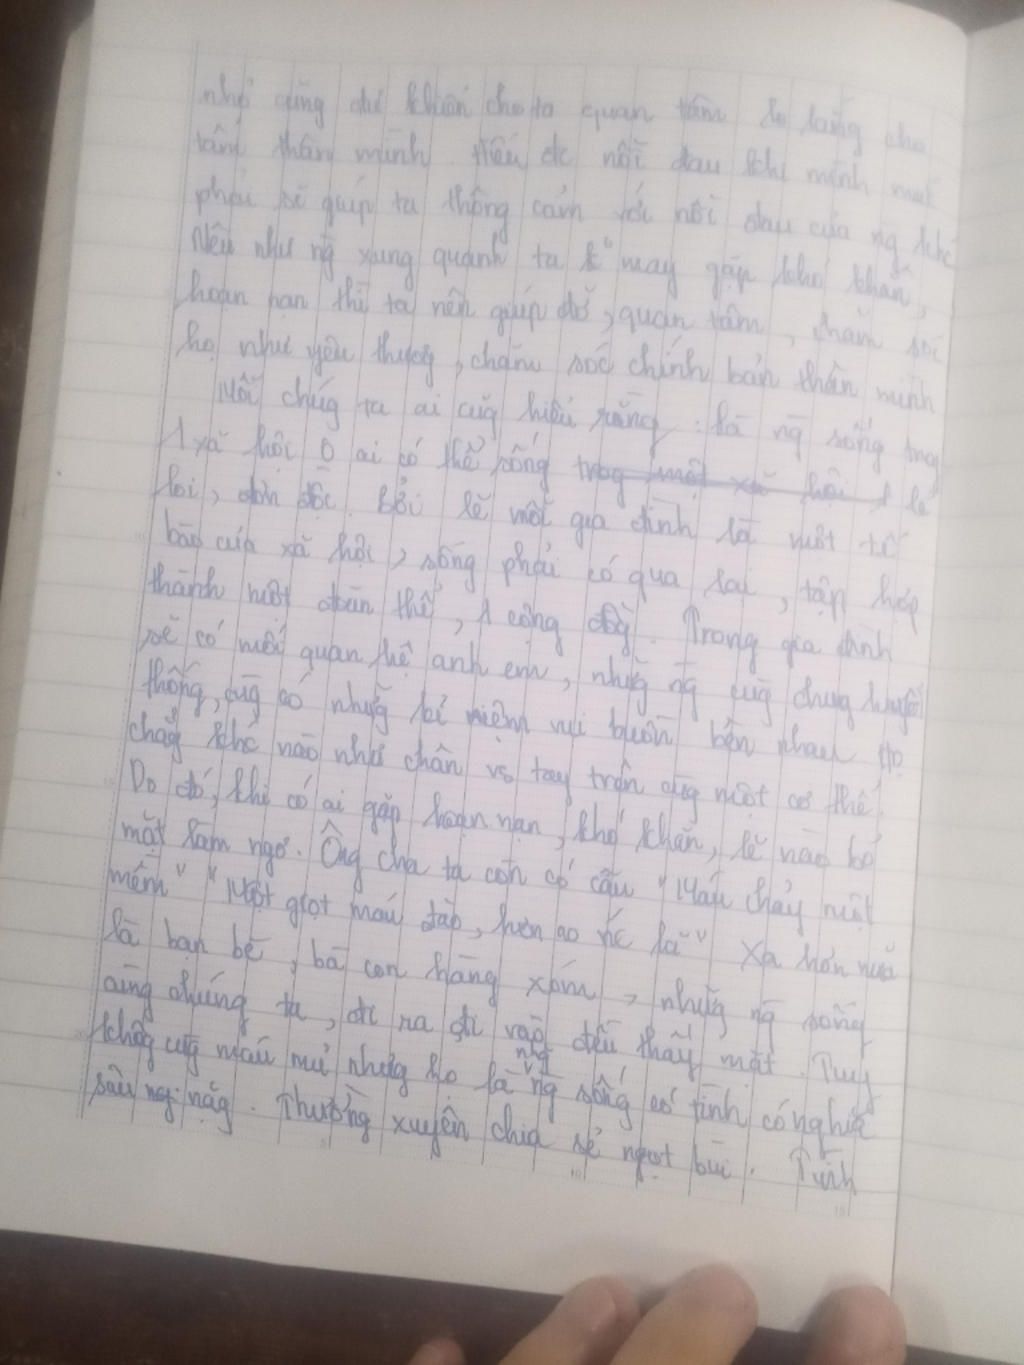 nhỏ cũng đủ khiến cho ta quan tâm lo lắng cho
tấm thân mình. Hiểu đc nỗi đau khi mình mắc
phải sẽ giúp ta thông cảm với nỗi đau của ng khác
Nếu như ng xung quanh ta k° may gặp khó khăn,
hoạn nạn thì ta nên giúp đỡ, quan tâm, chăm sóc
họ như yêu thương, chăm sóc chính bản thân mình
Mỗi chúg ta ai cũg hiểu rằng: là ng sống trog
1 xã hội 0 ai có thể sống trog một xã hội lẻ
loi, đơn độc. Bởi lẽ mỗi gia đình là một tế
bào của xã hội, sống phải có qua lại, tập hợp
thành một đoàn thể, 1 cộng đồg. Trong gia đình
sẽ có mối quan hệ anh em, nhữg ng cùg chung huyết
thống, cùg có nhữg kỉ niệm vui buồn bên nhau. Họ
chẳg khác nào như chân vs tay trên cùg một cơ thể.
Do đó, khi có ai gặp hoạn nạn, khó khăn, lẽ nào bỏ
mặt làm ngơ. Ôg cha ta còn có câu "Máu chảy ruột
mềm" "Một giọt máu đào, hơn ao nc lã" Xa hơn nữa
là bạn bè, bà con hàng xóm, nhữg ng sống
cùng chúng ta, đi ra đi vào đều thấy mặt. Tuy
khôg cùg máu mủ nhưg họ là nhg ng sống có tình có nghĩa
sâu ng nặg. Thường xuyên chia sẻ ngọt bùi. Tình